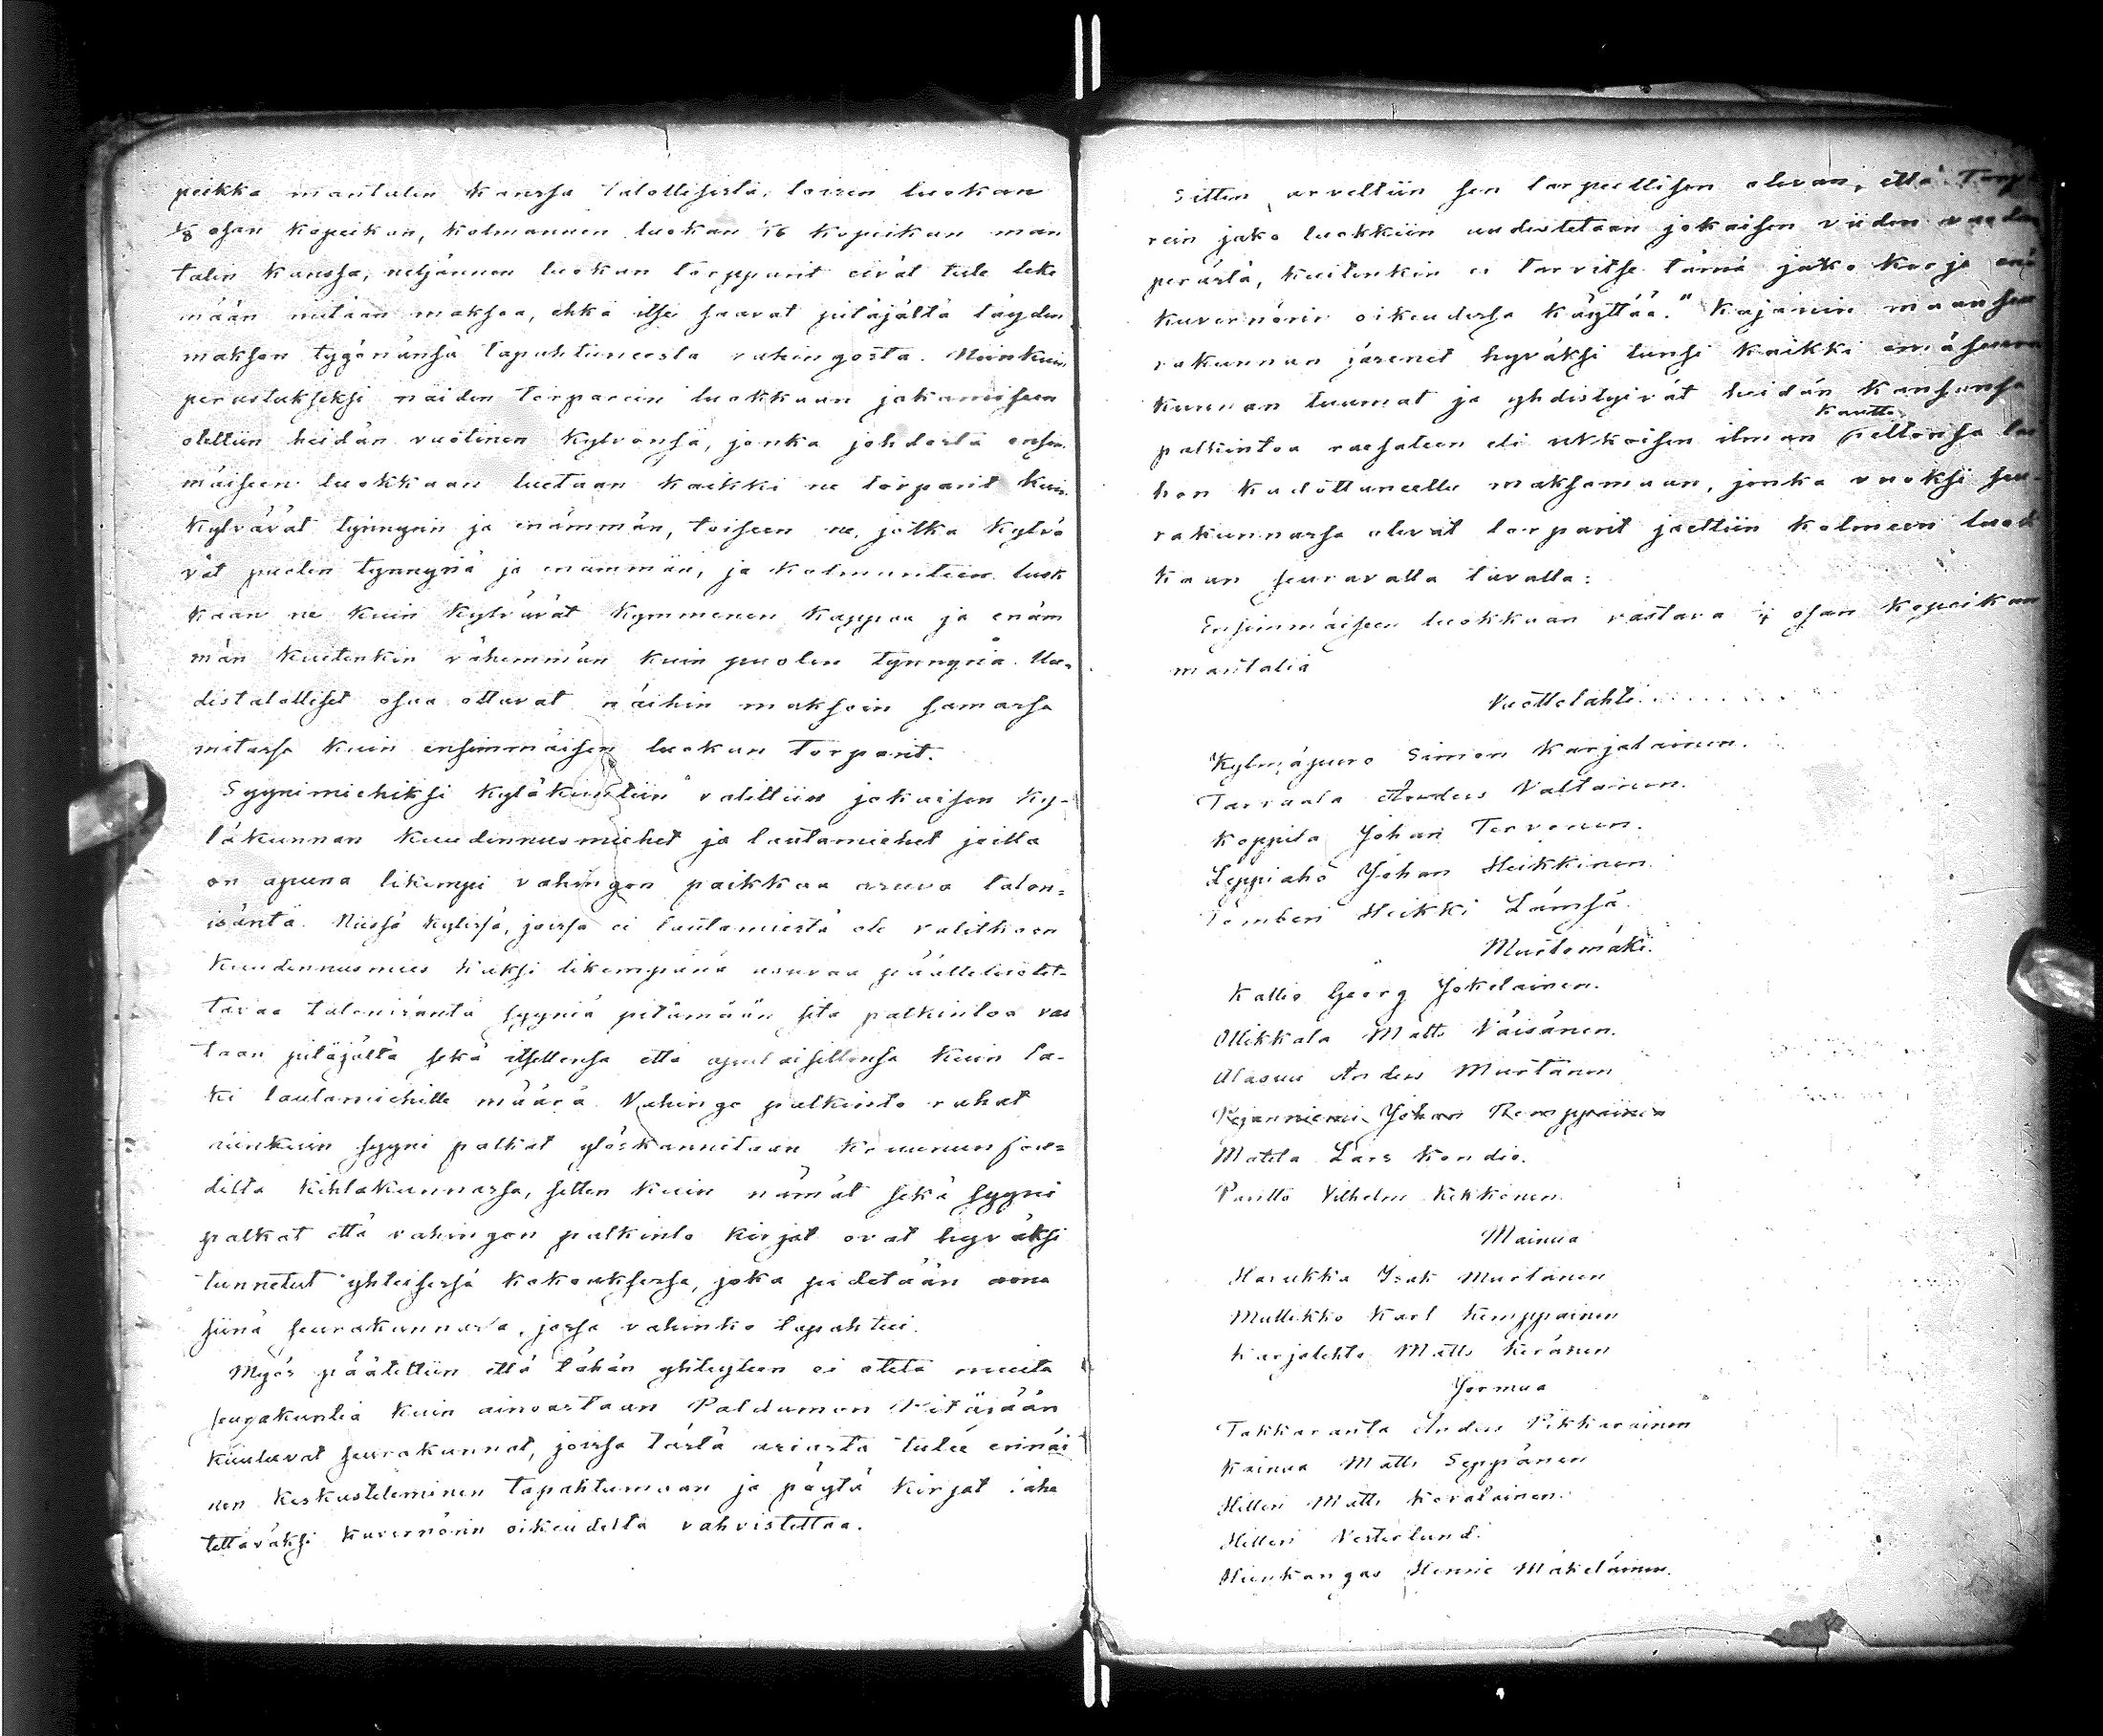 peikka mantalin kanssa talollisesta, toisen luokan
1/8 osan kopeikan, kolmannen luokan 1/16 kopeikan man
talin kanssa, neljännen luokan torpparit eivät tule teke
mään mitään maksoa, ehkä itse saavat pitäjältä täyden
makson tygönänsä tapahtuneesta vahingosta. Niinkuin
perustukseksi näiden torparein luokkaan jakamiseen
otettiin heidän vuotinen kylvönsä, jonka johdosta ensim
mäiseen luokkaan luetaan kaikki ne torparit kuin
kylvävät tynnyrin ja enämmän, toiseen ne, jotka kylvä
vät puolen tynnyriä ja enämmän, ja kolmanteen luok
kaan ne kuin kylvävät kymmenen kappaa ja enäm
män kuitenkin vähemmän kuin puolen tynnyriä. Uu-
distalolliset osaa ottavat näihin maksoin samassa
mitassa kuin ensimmäisen luokan torparit.
Syynimiehiksi kyläkuntiin valittiin jokaisen ky-
läkunnan kuudennusmiehet ja lautamiehet joilla
on apuna likempi vahingon paikkaa asuva talon-
isäntä. Niissä kylissä, joissa ei lautamiestä ole valitkoon
kuudennusmies kaksi likempänä asuvaa päälleluotet-
tavaa talonisäntä syyniä pitämään sitä palkintoa vas
taan pitäjältä sekä itsellensä että apulaisillensa kuin la-
ki lautamiehille määrä. Vahingo palkinto rahat
niinkuin syyni palkat ylöskannitaan kruunun fou-
dilta kihlakunnassa, sitten kuin nämät sekä syyni
palkat että vahingon palkinto kirjat ovat hyväksi
tunnetut yhteisessä kokouksessa, joka pidetään aina
siinä seurakunnassa, jossa vahinko tapahtui.
Myös päätettiin että tähän yhteyteen ei oteta muita
seurakuntia kuin ainoastaan Paldamon Pitäjään
kuuluvat seurakunnat, joissa tästä asiasta tulee erinäi
nen keskusteleminen tapahtumaan ja pöytä kirjat lähe
tettäväksi kuvernörin oikeudelta vahvistettaa.
Sitten arveltiin sen tarpeellisen olevan, että Torp
rein jako luokkiin uudistetaan jokaisen viiden vuoden
perästä, kuitenkin ei tarvitse tämä jako kirja enä
kuvernörin oikeudessa käyttää." Kajanin maanseu
rakunnan jäsenet hyväksi tunsi kaikki emäseura
kunnan tuumat ja yhdistyivät heidän kanssansa
kautta
palkintoa raesateen eli ukkoisen ilman peltonsa las
hon kadottaneelle maksamaan, jonka vuoksi seu-
rakunnassa olevat torparit jaettiin kolmeen luok
kaan seuraavalla tavalla:
Ensimmäiseen luokkaan vastava 1/4 osan kopeikan
mantalia
Vuottolahti
Kylmäpuro Simon Karjalainen.
Tarraala Anders Valtanen.
Koppila Johan Tervonen.
Leppiaho Johan Heikkinen
Tomberi Heikki Lämsä.
Murtomäki.
Kallio Georg Jokelainen.
Ollikkala Matts Väisänen.
Alasuu Anders Murtanen
Johan Kemppainen
Matila Lars Kondio.
Puritto Vilhelm Kekkonen.
Mainua
Harukka Isak Murtanen
Mullikko Karl Kemppainen
Karjalehto Matts Keränen
Jormua
Takkaranta Anders Pikkarainen
Kainua Matts Seppänen
Hilleri Matts Kovalainen.
Hilleri Vesterlund.
Hienkangas Hennie Mäkeläinen.